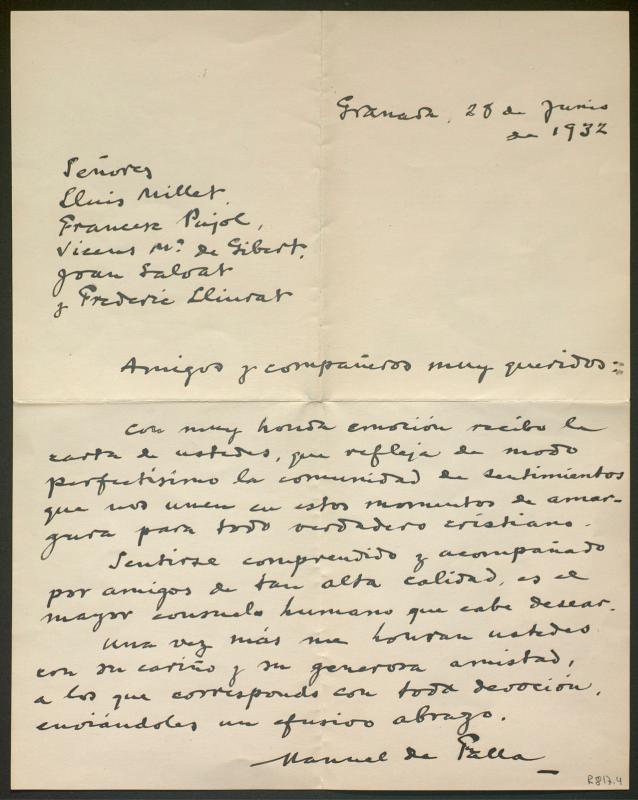 Granada, 28 de Junio
de 1932
Señores
Lluis Millet,
Francesc Pujol,
Vicens Mª de Gibert,
Joan Salvat
y Frederic Lliurat
Amigos y compañeros muy queridos:
Con muy honda emoción recibo la
carta de ustedes, que refleja de modo
perfectísimo la comunidad de sentimientos
que nos unen en estos momentos de amar-
gura para todo verdadero cristiano.
Sentirse comprendido y acompañado
por amigos de tan alta calidad, es el
mayor consuelo humano que cabe desear.
Una vez más me honran ustedes
con su cariño y su generosa amistad,
a los que correspondo con toda devoción,
enviándoles un efusivo abrazo.
Manuel de Falla
R817.4